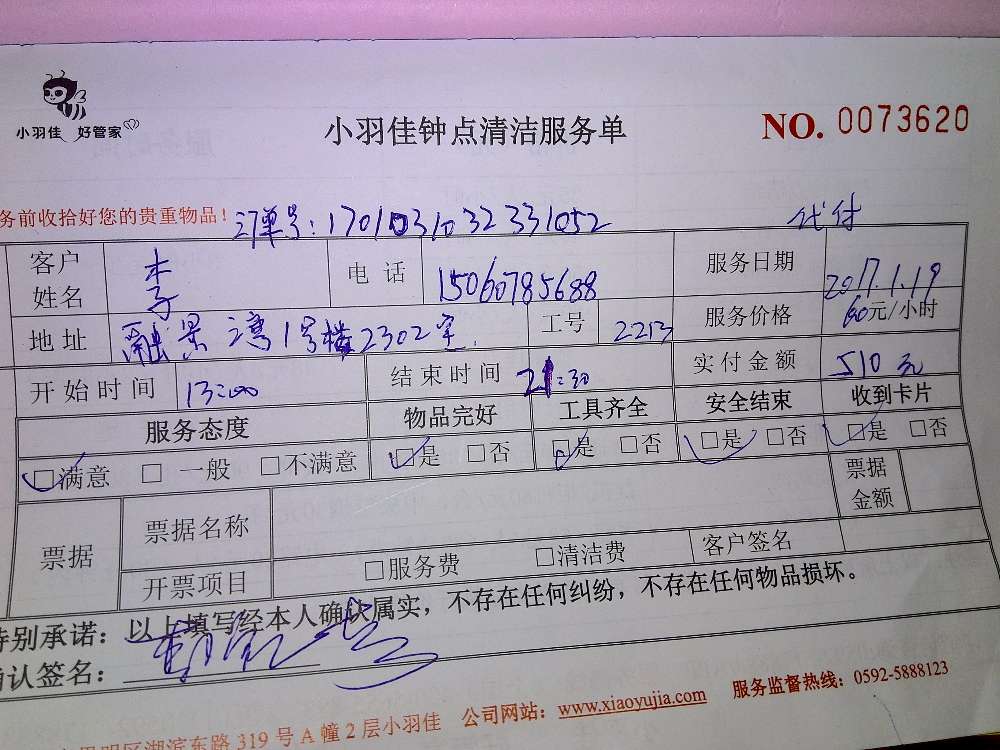 小羽佳 好管家
小羽佳钟点清洁服务单
NO. 0073620
务前收拾好您的贵重物品！ 订单号：1701031032331052 代付
客户姓名 李 电话 15060785688 服务日期 2017.1.19
地址 融景湾1号楼2302室. 工号 2213 服务价格 60元/小时
开始时间 13:00 结束时间 21:30 实付金额 510元
服务态度 物品完好 工具齐全 安全结束 收到卡片
☑满意 □ 一般 □不满意 ☑是 □否 ☑是 □否 ☑是 □否 ☑是 □否
票据 票据名称 票据金额
开票项目 □服务费 □清洁费 客户签名
特别承诺：以上填写经本人确认属实，不存在任何纠纷，不存在任何物品损坏。
确认签名：
思明区湖滨东路 319 号 A 幢 2 层小羽佳 公司网站：www.xiaoyujia.com 服务监督热线：0592-5888123